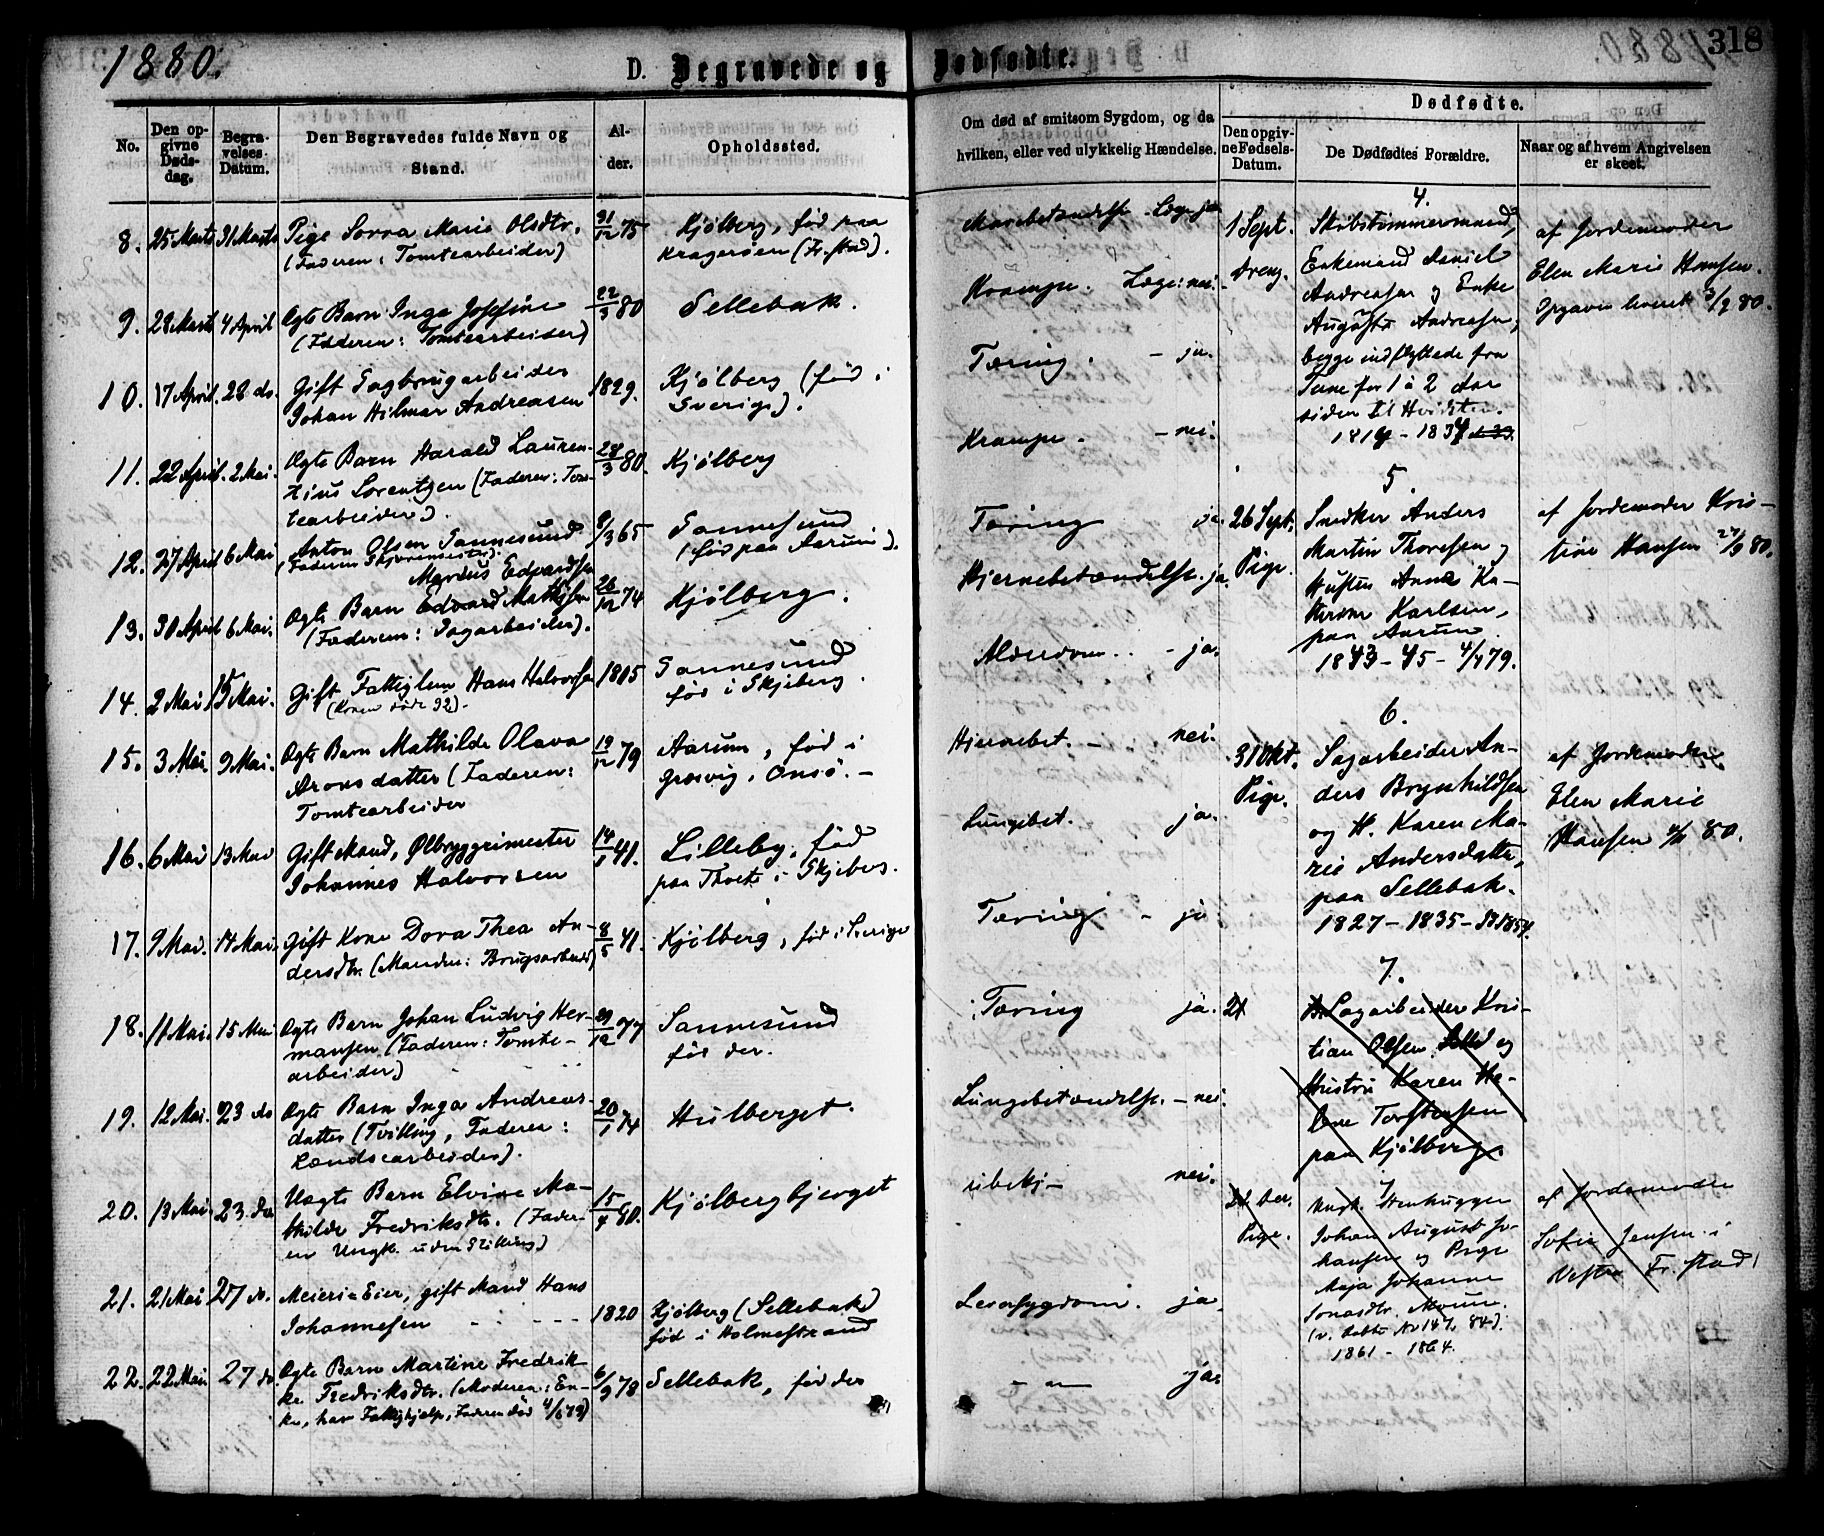 1880.
D. Begravede og Dødfødte.
318
No.
Den opgivne Dødsdag.
Begravelses Datum.
Den Begravedes fulde Navn og Stand.
Alder.
Opholdssted.
Om død af smitsom Sygdom, og da hvilken, eller ved ulykkelig Hændelse.
Dødfødte.
Den opgivne Fødsels-Datum.
De Dødfødtes Forældre.
Naar og af hvem Angivelsen er skeet.
8. 25 Marts 31 Marts Pige Marie Olsdtr. 31/12 75 Kjølberg, fød paa
(Faderen: Tomtearbeider) Kragerøen (Fr.stad).
9. 28 Marts 4 April Ægte Barn Inga Josefine 22/3 80 Sellebak. Krampe. Læge: nei.
(Faderen: Tomtearbeider)
10. 17 April 28 ds. Gift Sagbrugarbeider 1829. Kjølberg (fød i Tæring. - ja.
Johan Hilmar Andreasen Sverige).
11. 22 April 2 Mai. Ægte Barn Harald Lauren- 28/3 80. Kjølberg Krampe. - nei.
tius Lorentzen (Faderen: Tom-
tearbeider).
12. 27 April 6 Mai Anton Olsen Sannesund 8/3 65 Sannesund Tæring ja.
(fød paa Aarum).
Marius Edvardsen
13. 30 April 6 Mai. Ægte Barn Edvard Mathisen 26/12 74 Kjølberg. Hjernebetændelse. ja.
(Faderen: Sagarbeider).
14. 2 Mai 15 Mai. Gift Fattiglem Hans Halvorsen 1805 Sannesund Alderdom. - ja.
fød i Skjeberg.
15. 3 Mai. 9 Mai. Ægte Barn Mathilde Olava 19/12 79 Aarum, fød i Hjernebet. - nei.
Aronsdatter (Faderen: Onsø. -
Tomtearbeider
16. 6 Mai 13 Mai Gift Mand, Ølbryggrimester 14/1 41. Lilleby, fød Lungebet. ja.
Johannes Halvorsen paa i Skjeberg.
17. 9 Mai. 14 Mai. Gift Kone Dora Thea An- 8/5 41. Kjølberg, fød i Sverige Tæring - ja
dersdtr. (Manden: Brugsarbeider)
18. 11 Mai. 15 Mai Ægte Barn Johan Ludvig Her- 29/12 77 Sannesund Tæring ja.
mansen (Faderen: Tomte- fød der.
arbeider)
19. 12 Mai. 23 ds Ægte Barn Inga Andreas- 20/1 74 Hulberget. Lungebetændelse. - nei.
datter (Tvilling, Faderen:
Landsearbeider).
20. 13 Mai. 23 ds Uægte Barn Elvine Ma- 15/4 80. Kjølbergbjerget ubekj- nei.
thilde Fredriksdtr. (Fader-
en Ungk. uden Stilling)
21. 21 Mai 27 ds. Meieri-Eier, gift Mand Hans
Johannesen 1820 Kjølberg (Sellebak) ja.
fød i Holmestrand
22. 22 Mai 27 ds. Ægte Barn Martine Fredrik- 6/9 78 Sellebak, fød der - " - ja.
ke Fredriksdtr. (Moderen: En-
ke, har Fattighjelp, Faderen død
4.
1 Sept. Skibstømmermand,
Dreng. Enkemand Daniel
Andreasen og Enke
Augusta Andreasen,
begge indflyttede fra
Tune for 1 à 2 Aar
siden til
af Jordemoder
Elen Marie Hansen.
Opgaven leveret
5.
26 Sept. Snedker Anders
Pige. Martin Thoresen og
Hustru Anna Ka-
Karlsen,
paa Aarum.
1843 - 45 - 4/4 79.
af Jordemoder Kris-
tine Hansen 27/9 80.
6.
31 Okt. Sagarbeider An-
Pige. ders Brynhildsen
og H. Karen Ma-
rie Andersdatter,
paa Sellebak.
1827 - 1835 -
af Jordemoder
Elen Marie
Hansen 80.
7.
Sagarbeider Kris-
tian Olsen og
Hustru Karen He-
lene Torstensen
paa Kjølberg.
7
Pige. Ungk. Stenhugger
Johan August Jo-
hansen og Pige
Maja Johanne
Jonasdtr.
1861 - 1864.
af Jordemoder
Sofie Jensen i
Vestre Fr.stad